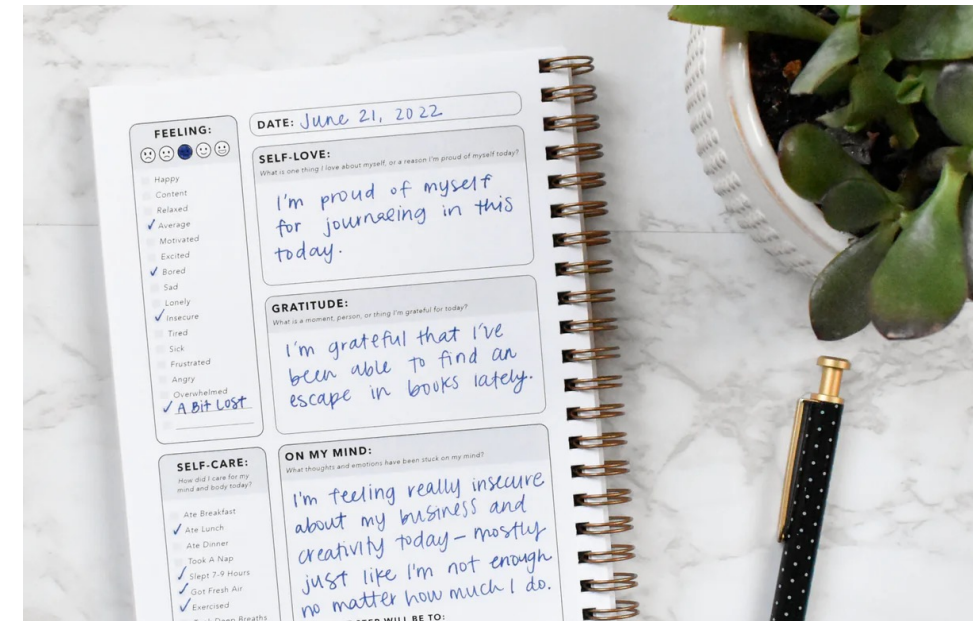 FEELING:
Happy
Content
Relaxed
Average
Motivated
Excited
Bored
Sad
Lonely
Insecure
Tired
Sick
Frustrated
Angry
Overwhelmed
A Bit Lost
SELF-CARE:
How did I care for my
mind and body today?
Ate Breakfast
Ate Lunch
Ate Dinner
Took A Nap
Slept 7-9 Hours
Got Fresh Air
Exercised
Deep Breaths
DATE: June 21, 2022
SELF-LOVE:
What is one thing I love about myself, or a reason I'm proud of myself today?
I'm proud of myself
for journaling in this
today.
GRATITUDE:
What is a moment, person, or thing I'm grateful for today?
I'm grateful that I've
been able to find an
escape in books lately.
ON MY MIND:
What thoughts and emotions have been stuck on my mind?
I'm feeling really insecure
about my business and
creativity today – mostly
just like I'm not enough
no matter how much I do.
WILL BE TO: